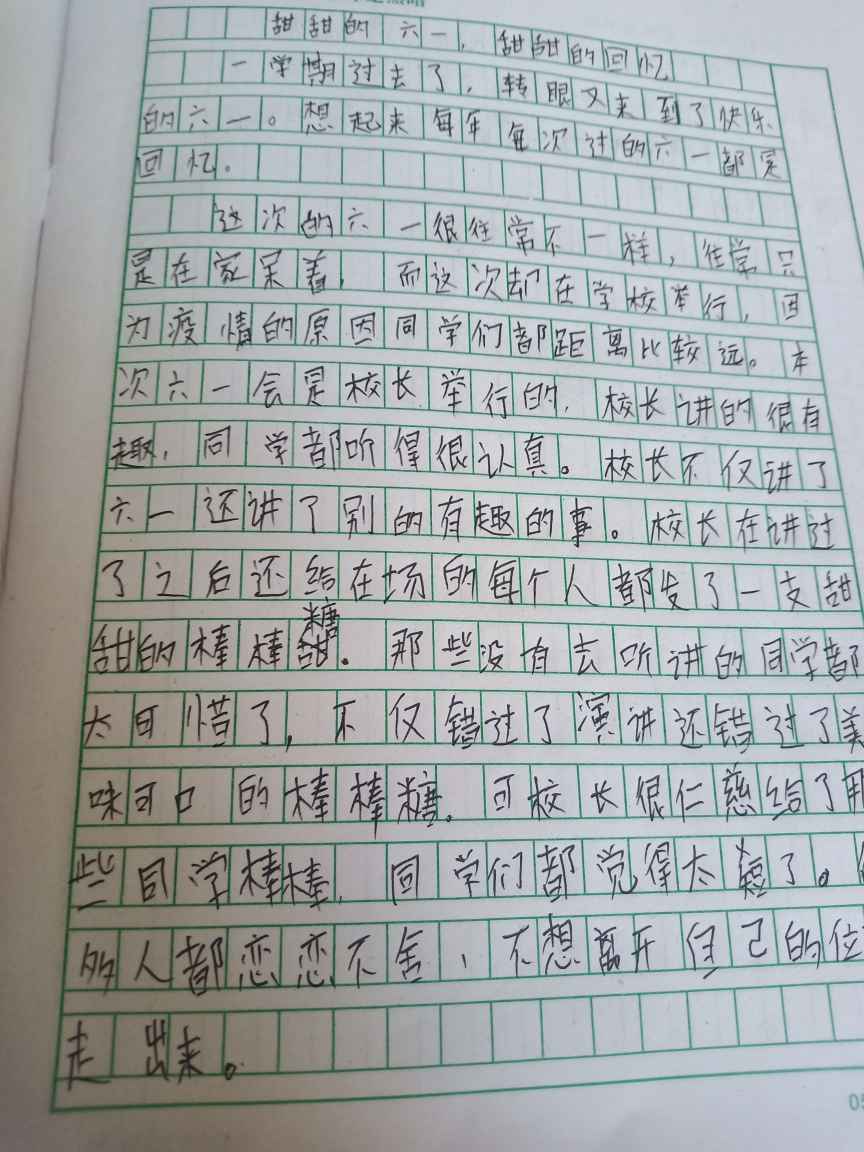 甜甜的六一，甜甜的回忆
一学期过去了，转眼又来到了快乐
的六一。想起来每年每次过的六一都是
回忆。
这次的六一很往常不一样，往常只
是在家呆着，而这次却在学校举行，因
为疫情的原因同学们都距离比较远。本
次六一会是校长举行的，校长讲的很有
趣，同学都听得很认真。校长不仅讲了
六一还讲了别的有趣的事。校长在讲过
了之后还给在场的每个人都发了一支甜
甜的棒棒糖。那些没有去听讲的同学都
太可惜了，不仅错过了演讲还错过了美
味可口的棒棒糖。可校长很仁慈给了那
些同学棒棒，同学们都觉得太短了。
的人都恋恋不舍，不想离开自己的位
走出来。